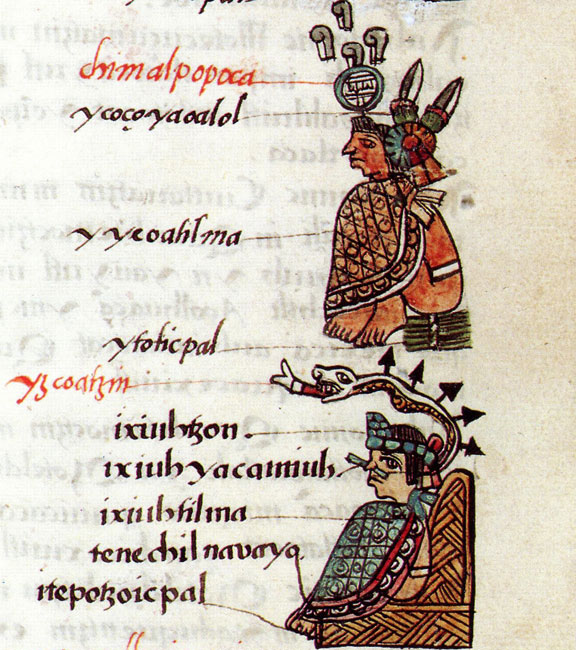 chimalpopoca
ycoçoyaoalol
ytolicpal
yzcoatzin
ixiuhtzon.
ixiuh yacamiuh.
ixiuhtilma
tenechilnavayo
itepotzoicpal